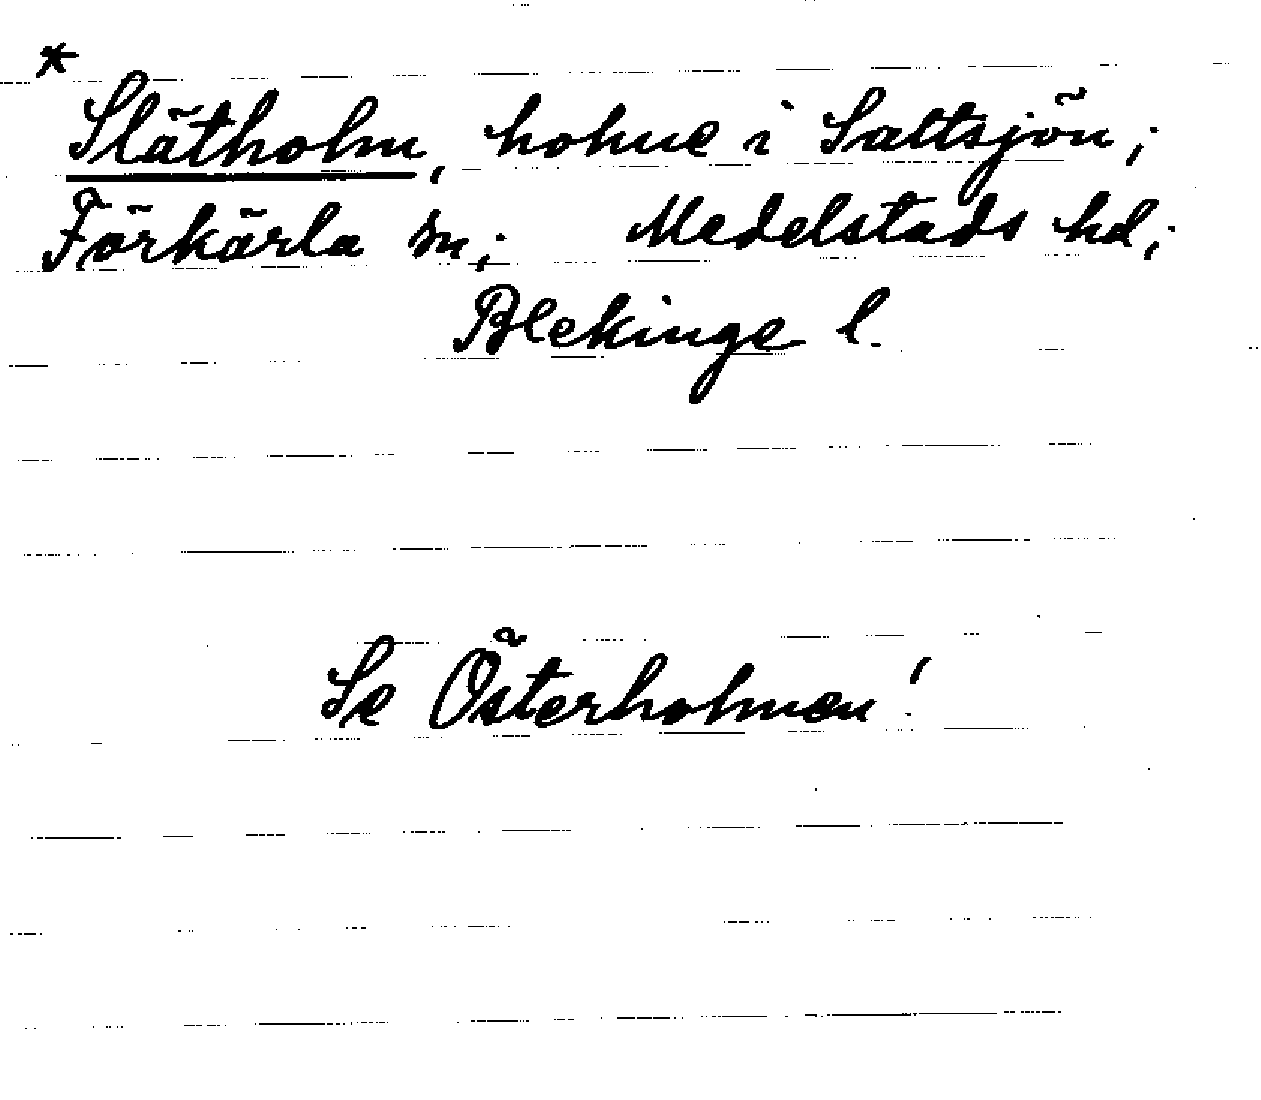 *
Slätholm, holme i Saltsjön;
Förkärla sn; Medelstads hd;
Blekinge l.
Se Österholmen!